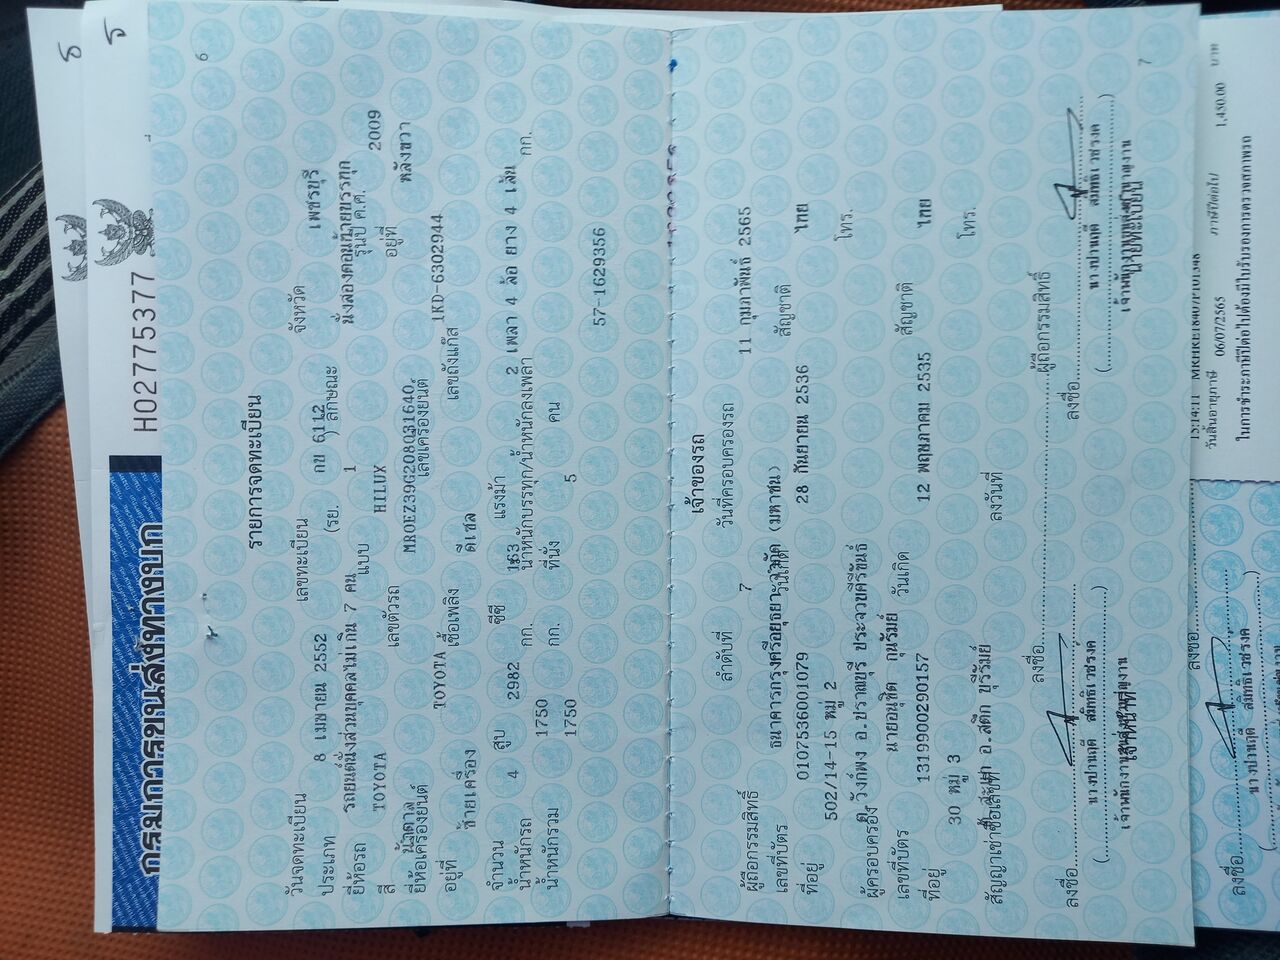 กรมการขนส่งทางบก
H02775377
6
รายการจดทะเบียน
วันจดทะเบียน 8 เมษายน 2552 เลขทะเบียน กข 6112 จังหวัด เพชรบุรี
ประเภท รถยนต์นั่งส่วนบุคคลไม่เกิน 7 คน (รย. 1 ) ลักษณะ นั่งสองตอนท้ายบรรทุก
ยี่ห้อรถ TOYOTA แบบ HILUX รุ่นปี ค.ศ. 2009
สี น้ำตาล เลขตัวรถ MROEZ39G208031640 อยู่ที่ หลังขวา
ยี่ห้อเครื่องยนต์ TOYOTA เลขเครื่องยนต์ 1KD-6302944
อยู่ที่ ซ้ายเครื่อง เชื้อเพลิง ดีเซล เลขถังแก๊ส
จำนวน 4 สูบ 2982 ซีซี 163 แรงม้า 2 เพลา 4 ล้อ ยาง 4 เส้น
น้ำหนักรถ 1750 กก. น้ำหนักบรรทุก/น้ำหนักลงเพลา กก.
น้ำหนักรวม 1750 กก. ที่นั่ง 5 คน
57-1629356
เจ้าของรถ
ลำดับที่ 7 วันที่ครอบครองรถ 11 กุมภาพันธ์ 2565
ผู้ถือกรรมสิทธิ์ ธนาคารกรุงศรีอยุธยา จำกัด (มหาชน)
เลขที่บัตร 0107536001079 วันเกิด 28 กันยายน 2536 สัญชาติ ไทย
ที่อยู่ 502/14-15 หมู่ 2 โทร.
ต.วังก์พง อ.ปราณบุรี ประจวบคีรีขันธ์
ผู้ครอบครอง นายอนุชิต กุนรัมย์
เลขที่บัตร 1319900290157 วันเกิด 12 พฤษภาคม 2535 สัญชาติ ไทย
ที่อยู่ 30 หมู่ 3 โทร.
อ.สตึก บุรีรัมย์
สัญญาเช่าซื้อเลขที่ ลงวันที่
ลงชื่อ ผู้ถือกรรมสิทธิ์
ลงชื่อ ลงชื่อ
7
15:14:11
วันสิ้นอายุภาษี 06/07/2565 ภาษีปีต่อไป 1,450.00 บาท
ในการชำระภาษีปีต่อไปต้องมีใบรับรองการตรวจสภาพรถ
ลงชื่อ
ลงชื่อ